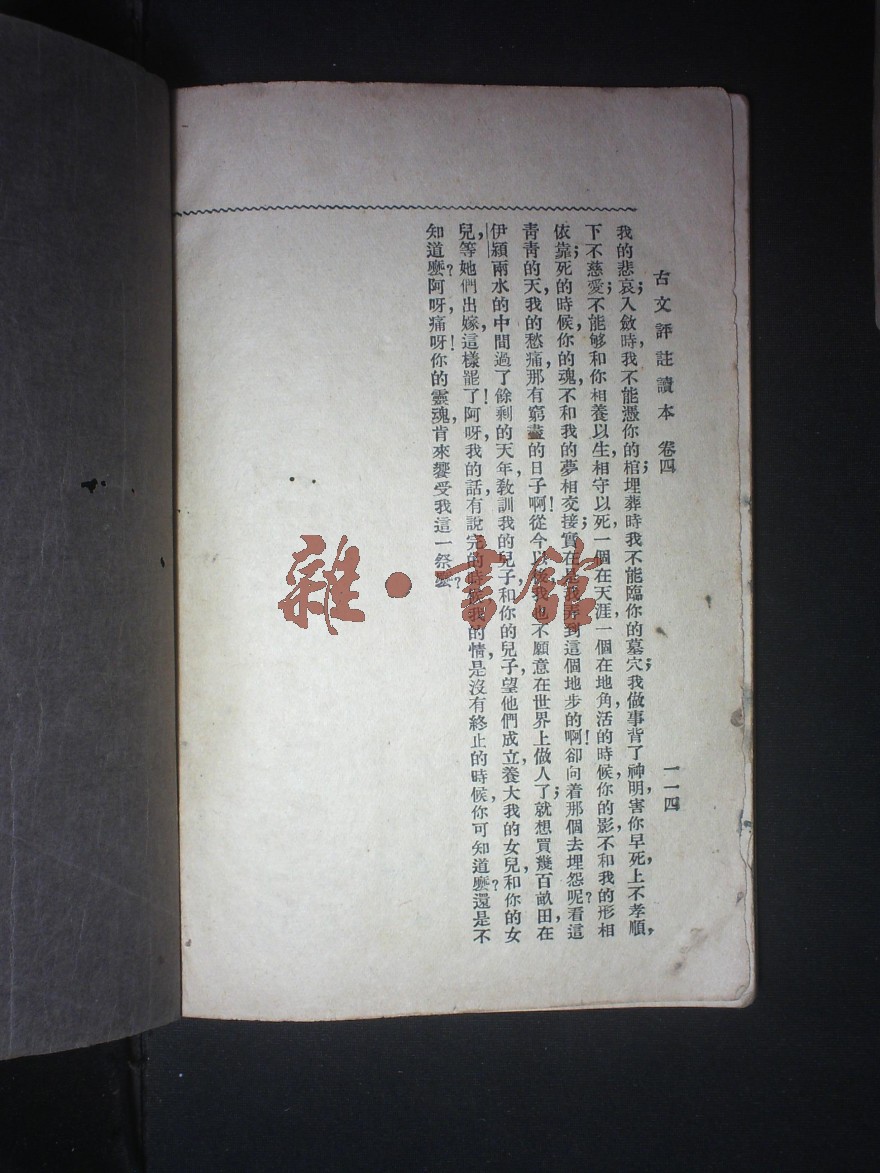 古文評註讀本 卷四
一一四
我的悲哀；入斂時，我不能憑你的棺；埋葬時，我不能臨你的墓穴；我做事背了神明，害你早死，上不孝順，
下不慈愛；不能够和你相養以生，相守以死，一個在天涯，一個在地角，活的時候，你的影，不和我的形相
依靠；死的時候，你的魂，不和我的夢相交接；實在是我弄到這個地步的啊！卻向着那個去埋怨呢？看這
青青的天，我的愁痛，那有窮盡的日子啊！從今以後，我也不願意在世界上做人了；就想買幾百畝田，在
伊潁兩水的中間，過了餘剩的天年，教訓我的兒子和你的兒子，望他們成立，養大我的女兒，和你的女
兒，等她們出嫁，這樣罷了！阿呀，我的話，有說完的時候，我的情，是沒有終止的時候，你可知道麽？還是不
知道麽？阿呀，痛呀！你的靈魂，肯來饗受我這一祭麽？
雜·書館